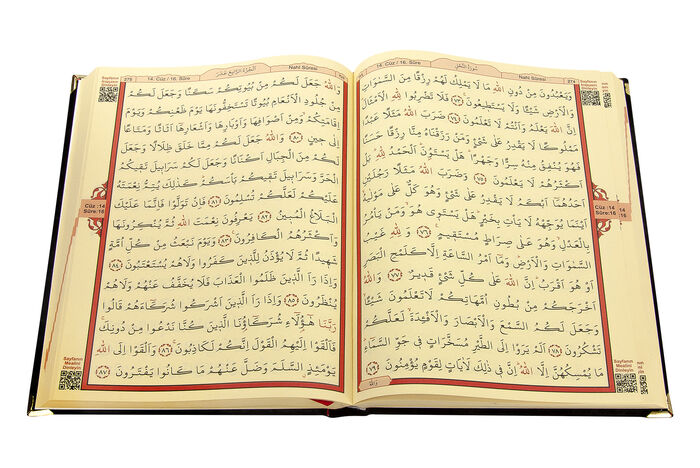 274
Nahl Sûresi
سُورَةُ النَّحْلِ
14. Cüz / 16. Sûre
وَيَعْبُدُونَ مِنْ دُونِ اللّٰهِ مَا لَا يَمْلِكُ لَهُمْ رِزْقًا مِنَ السَّمٰوَاتِ
وَالْاَرْضِ شَيْـًٔا وَلَا يَسْتَطِيعُونَ ﴿٧٣﴾ فَلَا تَضْرِبُوا لِلّٰهِ الْاَمْثَالَ
اِنَّ اللّٰهَ يَعْلَمُ وَاَنْتُمْ لَا تَعْلَمُونَ ﴿٧٤﴾ ضَرَبَ اللّٰهُ مَثَلًا عَبْدًا
مَمْلُوكًا لَا يَقْدِرُ عَلٰى شَيْءٍ وَمَنْ رَزَقْنَاهُ مِنَّا رِزْقًا حَسَنًا
فَهُوَ يُنْفِقُ مِنْهُ سِرًّا وَجَهْرًا هَلْ يَسْتَوُونَ اَلْحَمْدُ لِلّٰهِ بَلْ
اَكْثَرُهُمْ لَا يَعْلَمُونَ ﴿٧٥﴾ وَضَرَبَ اللّٰهُ مَثَلًا رَجُلَيْنِ
اَحَدُهُمَا اَبْكَمُ لَا يَقْدِرُ عَلٰى شَيْءٍ وَهُوَ كَلٌّ عَلٰى مَوْلٰيهُ
اَيْنَمَا يُوَجِّهْهُ لَا يَأْتِ بِخَيْرٍ هَلْ يَسْتَوِي هُوَ وَمَنْ يَأْمُرُ
بِالْعَدْلِ وَهُوَ عَلٰى صِرَاطٍ مُسْتَقِيمٍ ﴿٧٦﴾ وَلِلّٰهِ غَيْبُ
السَّمٰوَاتِ وَالْاَرْضِ وَمَا اَمْرُ السَّاعَةِ اِلَّا كَلَمْحِ الْبَصَرِ
اَوْ هُوَ اَقْرَبُ اِنَّ اللّٰهَ عَلٰى كُلِّ شَيْءٍ قَدِيرٌ ﴿٧٧﴾ وَاللّٰهُ
اَخْرَجَكُمْ مِنْ بُطُونِ اُمَّهَاتِكُمْ لَا تَعْلَمُونَ شَيْـًٔا
وَجَعَلَ لَكُمُ السَّمْعَ وَالْاَبْصَارَ وَالْاَفْـِٔدَةَ لَعَلَّكُمْ
تَشْكُرُونَ ﴿٧٨﴾ اَلَمْ يَرَوْا اِلَى الطَّيْرِ مُسَخَّرَاتٍ فِي جَوِّ السَّمَاءِ
مَا يُمْسِكُهُنَّ اِلَّا اللّٰهُ اِنَّ فِي ذٰلِكَ لَاٰيَاتٍ لِقَوْمٍ يُؤْمِنُونَ ﴿٧٩﴾
وَاللّٰهُ
Cüz :14
Sûre:16
Sayfanın
Mealini
Dinleyin
Nahl Sûresi
اَلْجُزْءُ الرَّابِعُ عَشَرَ
14. Cüz / 16. Sûre
275
وَاللّٰهُ جَعَلَ لَكُمْ مِنْ بُيُوتِكُمْ سَكَنًا وَجَعَلَ لَكُمْ
مِنْ جُلُودِ الْاَنْعَامِ بُيُوتًا تَسْتَخِفُّونَهَا يَوْمَ ظَعْنِكُمْ وَيَوْمَ
اِقَامَتِكُمْ وَمِنْ اَصْوَافِهَا وَاَوْبَارِهَا وَاَشْعَارِهَا اَثَاثًا وَمَتَاعًا
اِلٰى حِينٍ ﴿٨٠﴾ وَاللّٰهُ جَعَلَ لَكُمْ مِمَّا خَلَقَ ظِلَالًا وَجَعَلَ
لَكُمْ مِنَ الْجِبَالِ اَكْنَانًا وَجَعَلَ لَكُمْ سَرَابِيلَ تَقِيكُمُ
الْحَرَّ وَسَرَابِيلَ تَقِيكُمْ بَأْسَكُمْ كَذٰلِكَ يُتِمُّ نِعْمَتَهُ
عَلَيْكُمْ لَعَلَّكُمْ تُسْلِمُونَ ﴿٨١﴾ فَاِنْ تَوَلَّوْا فَاِنَّمَا عَلَيْكَ
الْبَلَاغُ الْمُبِينُ ﴿٨٢﴾ يَعْرِفُونَ نِعْمَتَ اللّٰهِ ثُمَّ يُنْكِرُونَهَا
وَاَكْثَرُهُمُ الْكَافِرُونَ ﴿٨٣﴾ وَيَوْمَ نَبْعَثُ مِنْ كُلِّ اُمَّةٍ
شَهِيدًا ثُمَّ لَا يُؤْذَنُ لِلَّذِينَ كَفَرُوا وَلَا هُمْ يُسْتَعْتَبُونَ ﴿٨٤﴾
وَاِذَا رَاَ الَّذِينَ ظَلَمُوا الْعَذَابَ فَلَا يُخَفَّفُ عَنْهُمْ وَلَا هُمْ
يُنْظَرُونَ ﴿٨٥﴾ وَاِذَا رَاَ الَّذِينَ اَشْرَكُوا شُرَكَاءَهُمْ قَالُوا
رَبَّنَا هٰؤُلَاءِ شُرَكَاؤُنَا الَّذِينَ كُنَّا نَدْعُوا مِنْ دُونِكَ
فَاَلْقَوْا اِلَيْهِمُ الْقَوْلَ اِنَّكُمْ لَكَاذِبُونَ ﴿٨٦﴾ وَاَلْقَوْا اِلَى اللّٰهِ
يَوْمَئِذٍ السَّلَمَ وَضَلَّ عَنْهُمْ مَا كَانُوا يَفْتَرُونَ ﴿٨٧﴾
Cüz :14
Sûre:16
Sayfanın
Mealini
Dinleyin